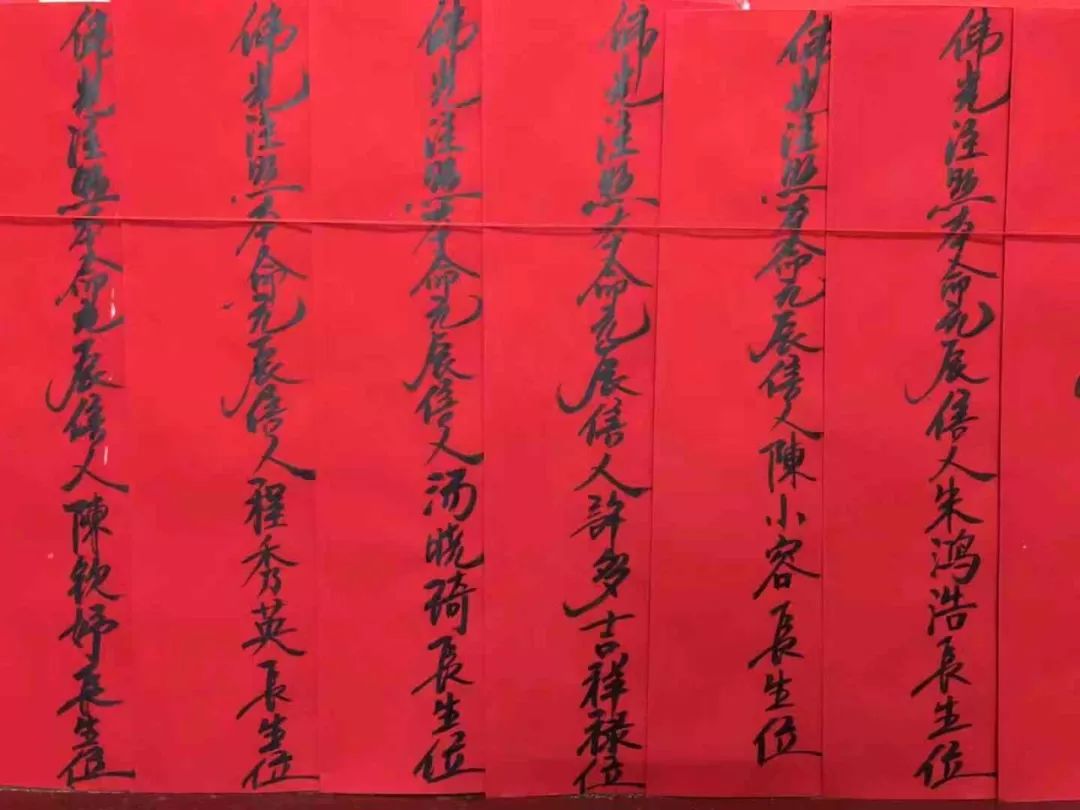 佛光注照本命元辰信人朱鸿浩長生位
佛光注照本命元辰信人陳小容長生位
佛光注照本命元辰信人許多吉祥禄位
佛光注照本命元辰信人汤晓琦長生位
佛光注照本命元辰信人程秀英長生位
佛光注照本命元辰信人陳钦妤長生位